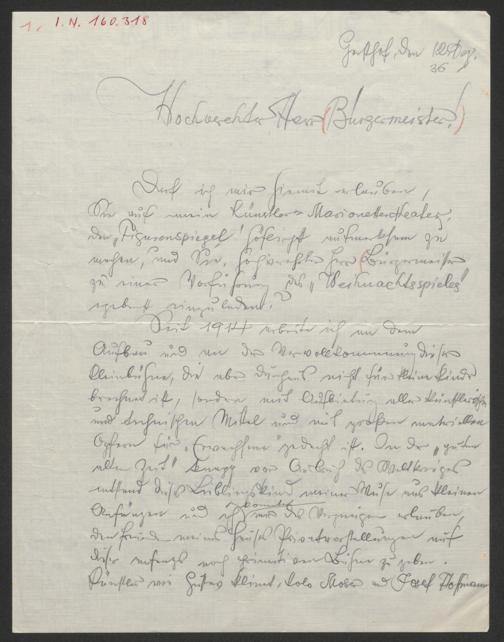 1, I.N. 160.318
Gersthof, den 12. Dez.
36
Hochverehrter Herr (Bürgermeister!)
Darf ich mir hiemit erlauben,
Sie auf mein Künstler-Marionettentheater,
den „Figurenspiegel" höflichst aufmerksam zu
machen, und Sie, hochverehrter Herr (Bürgermeister
zu einer Vorführung des „Weihnachtsspieles"
ergebenst einzuladen.
Seit 1914 arbeite ich an dem
Aufbau und an der Vervollkommnung dieser
Kleinbühne, die aber durchaus nicht für kleine Kinder
berechnet ist, sondern mit Aufbietung aller künstlerischen
und technischen Mittel und mit großen materiellen
Opfern für „Erwachsene" gedacht ist. In der „guten
alten Zeit" knapp vor Ausbruch des Weltkrieges
entstand dieses Lieblingskind meiner Muse aus kleinen
Anfängen und ich konnte mir das Vergnügen erlauben
den Freunden meines Hauses Privatvorstellungen auf
dieser anfangs noch primitiven Bühne zu geben.
Künstler wie Gustav Klimt, Kolo Moser und Josef Hofmann